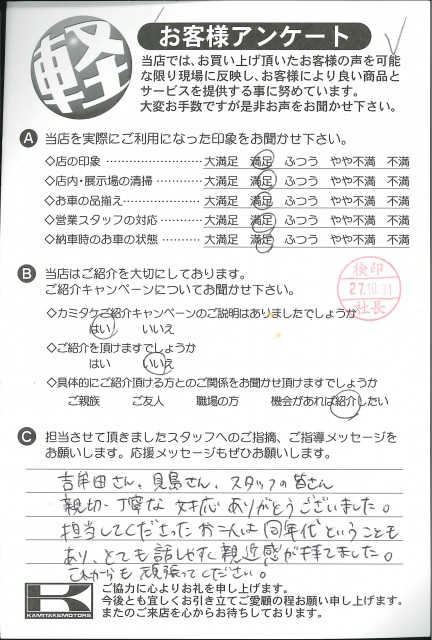 軽
お客様アンケート
当店では、お買い上げ頂いたお客様の声を可能
な限り現場に反映し、お客様により良い商品と
サービスを提供する事に努めています。
大変お手数ですが是非お声をお聞かせ下さい。
A 当店を実際にご利用になった印象をお聞かせ下さい。
◇店の印象 …………………… 大満足 満足 ふつう やや不満 不満
◇店内・展示場の清掃………… 大満足 満足 ふつう やや不満 不満
◇お車の品揃え………………… 大満足 満足 ふつう やや不満 不満
◇営業スタッフの対応………… 大満足 満足 ふつう やや不満 不満
◇納車時のお車の状態………… 大満足 満足 ふつう やや不満 不満
B 当店はご紹介を大切にしております。
ご紹介キャンペーンについてお聞かせ下さい。
検印
27.10.31
社長
◇カミタケご紹介キャンペーンのご説明はありましたでしょうか
はい いいえ
◇ご紹介を頂けますでしょうか
はい いいえ
◇具体的にご紹介頂ける方とのご関係をお聞かせ頂けますでしょうか
ご親族 ご友人 職場の方 機会があれば紹介したい
C 担当させて頂きましたスタッフへのご指摘、ご指導メッセージを
お願いします。応援メッセージもぜひお願いします。
吉牟田さん、見島さん、スタッフの皆さん
親切、丁寧な対応ありがとうございました。
担当してくださったお二人は同年代ということも
あり、とても話しやすく親近感が持てました。
これからも頑張ってください。
K
KAMITAKEMOTORS
ご協力に心よりお礼を申し上げます。
今後とも宜しくお引き立てご愛顧の程お願い申し上げます。
またのご来店を心からお待ちしております。